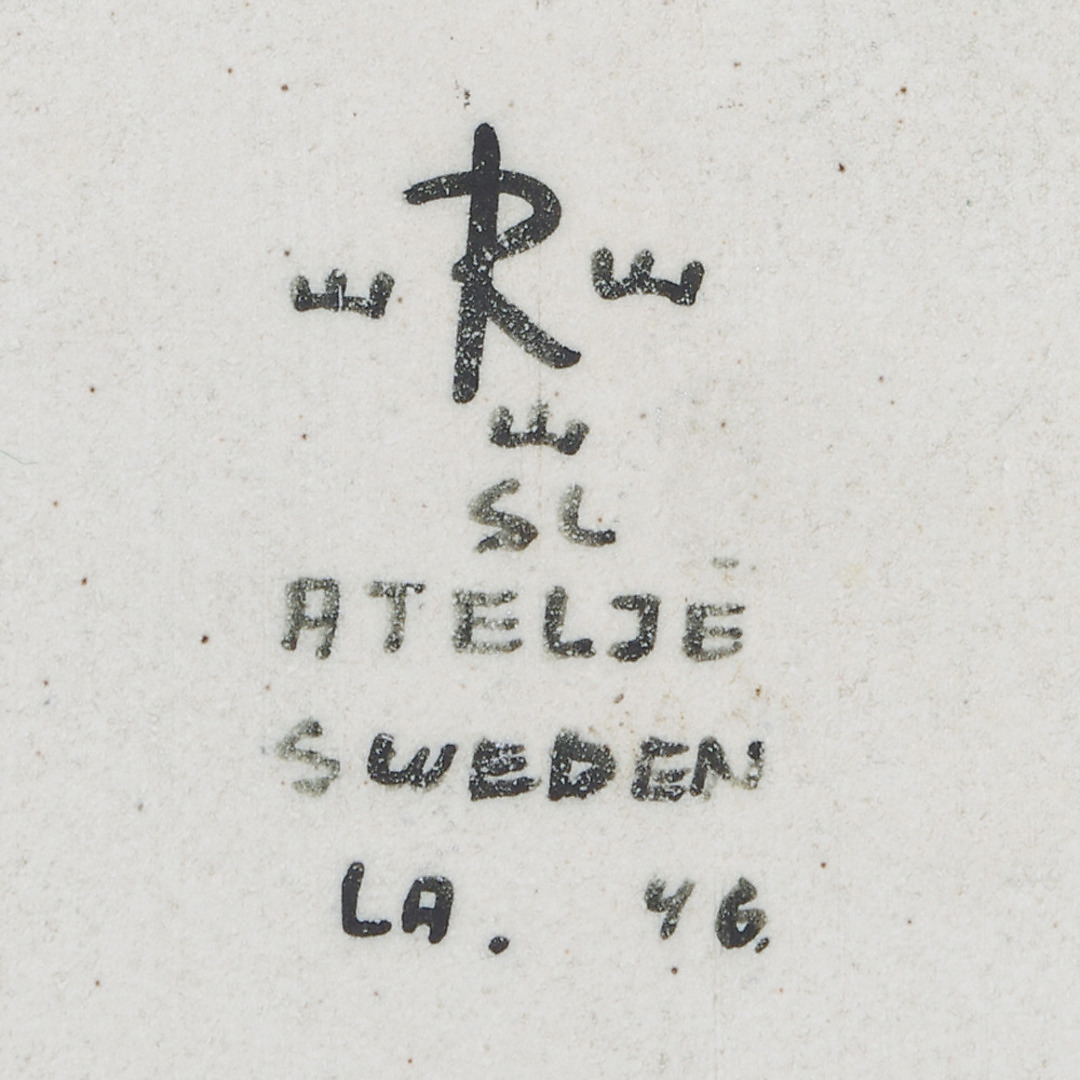 R
SL
ATELJÉ
SWEDEN
LA. 46.